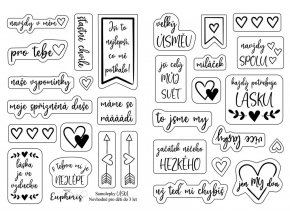 navždy v mém
pro tebe
šťastné chvíle
Jsi to
nejlepší,
co mě
potkalo!
naše vzpomínky
moje spřízněná duše
máme se
rááááádi
láska
je ve
vzduchu
s tebou mi je
NEJLÉPE
Euphoris
Samolepky LÁSKA
Nevhodné pro děti do 3 let
velký
ÚSMĚV
navždy
SPOLU
je celý
MŮJ
SVĚT
miláček
každý potřebuje
LÁSKU
to jsme my
více lásky
začátek něčeho
HEZKÉHO
jen MY dva
už teď mi chybíš